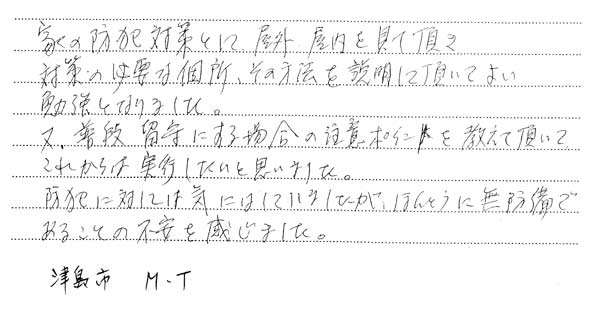 家の防犯対策として屋外 屋内を見て頂き
対策の必要な個所、その方法を説明して頂いてよい
勉強となりました。
又、普段 留守にする場合の注意ポイントを教えて頂いて
これからは実行したいと思いました。
防犯に対しては気にはしていましたが、ほんとうに無防備で
あることの不安を感じました。
津島市 M・T